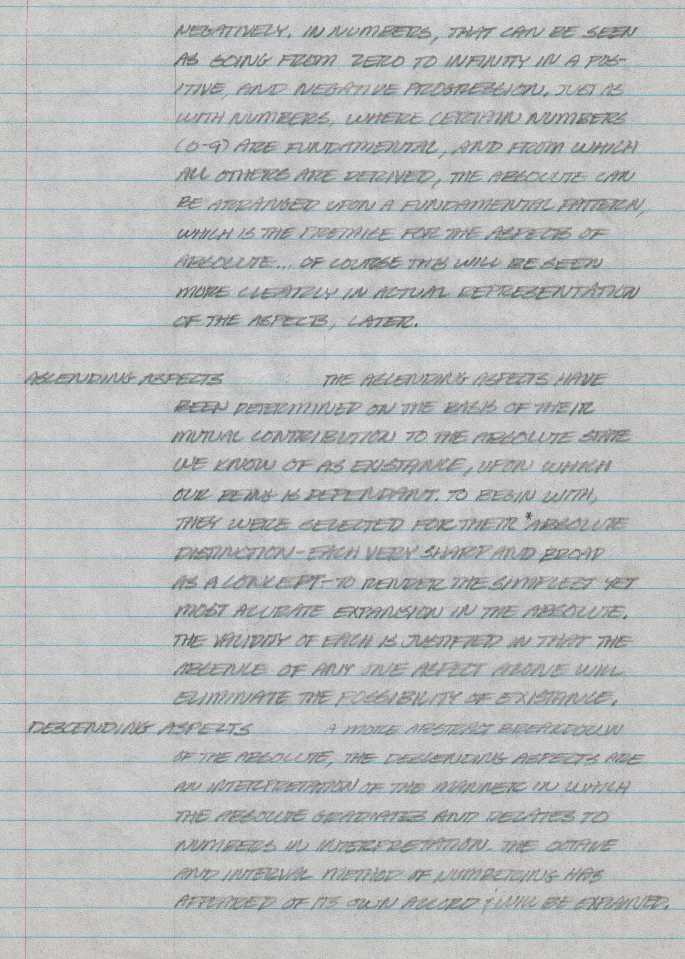 NEGATIVELY. IN NUMBERS, THAT CAN BE SEEN
AS GOING FROM ZERO TO INFINITY IN A POS-
ITIVE, AND NEGATIVE PROGRESSION. JUST AS
WITH NUMBERS, WHERE CERTAIN NUMBERS
(0-9) ARE FUNDAMENTAL, AND FROM WHICH
ALL OTHERS ARE DERIVED, THE ABSOLUTE CAN
BE ARRANGED UPON A FUNDAMENTAL PATTERN,
WHICH IS THE PREMISE FOR THE ASPECTS OF
ABSOLUTE... OF COURSE THIS WILL BE SEEN
MORE CLEARLY IN ACTUAL REPRESENTATION
OF THE ASPECTS, LATER.
ASCENDING ASPECTS THE ASCENDING ASPECTS HAVE
BEEN DETERMINED ON THE BASIS OF THEIR
MUTUAL CONTRIBUTION TO THE ABSOLUTE STATE
WE KNOW OF AS EXISTANCE, UPON WHICH
OUR BEING IS DEPENDANT. TO BEGIN WITH,
THEY WERE SELECTED FOR THEIR *ABSOLUTE
DISTINCTION - EACH VERY SHARP AND BROAD
AS A CONCEPT - TO RENDER THE SIMPLEST YET
MOST ACCURATE EXPANSION IN THE ABSOLUTE.
THE VALIDITY OF EACH IS JUSTIFIED IN THAT THE
ABSENCE OF ANY ONE ASPECT ALONE WILL
ELIMINATE THE POSSIBILITY OF EXISTANCE.
DESCENDING ASPECTS A MORE ABSTRACT BREAKDOWN
OF THE ABSOLUTE, THE DESCENDING ASPECTS ARE
AN INTERPRETATION OF THE MANNER IN WHICH
THE ABSOLUTE GRADUATES AND RELATES TO
NUMBERS IN INTERPRETATION. THE OCTAVE
AND INTERVAL METHOD OF NUMBERING HAS
APPEARED OF ITS OWN ACCORD & WILL BE EXPLAINED.